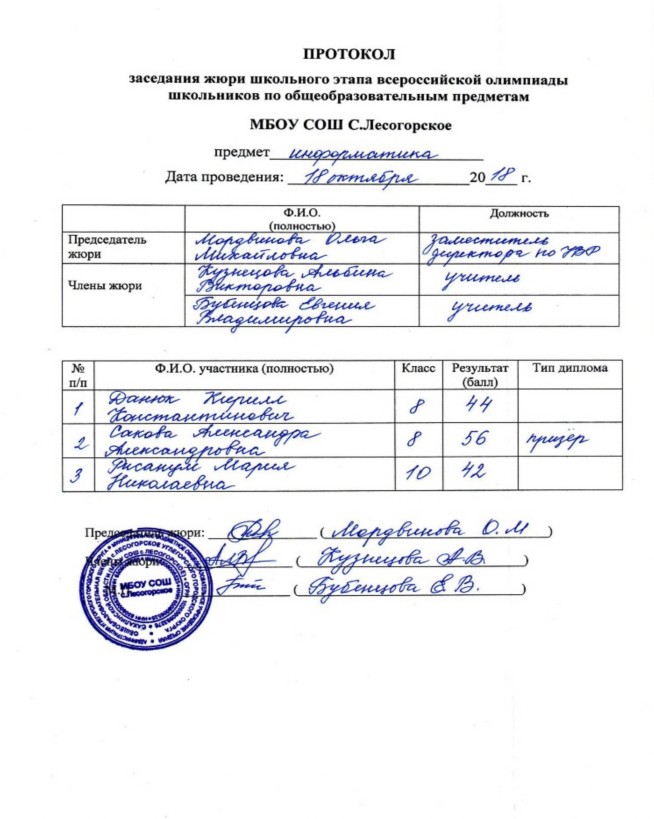 ПРОТОКОЛ
заседания жюри школьного этапа всероссийской олимпиады
школьников по общеобразовательным предметам
МБОУ СОШ С.Лесогорское
предмет информатика
Дата проведения: 18 октября 2018 г.
Ф.И.О. Должность
(полностью)
Председатель Мордвинова Ольга заместитель
жюри Михайловна директора по УВР
Члены жюри Кузнецова Альбина учитель
Викторовна
Бубенцова Евгения учитель
Владимировна
№ Ф.И.О. участника (полностью) Класс Результат Тип диплома
п/п (балл)
1 Данюк Кирилл 8 44
Константинович
2 Сакова Александра 8 56 призёр
Александровна
3 Мария 10 42
Николаевна
Председатель жюри: ( Мордвинова О.М )
Члены жюри: ( Кузнецова А.В. )
М.П. ( Бубенцова Е.В. )
МБОУ СОШ
с.Лесогорское